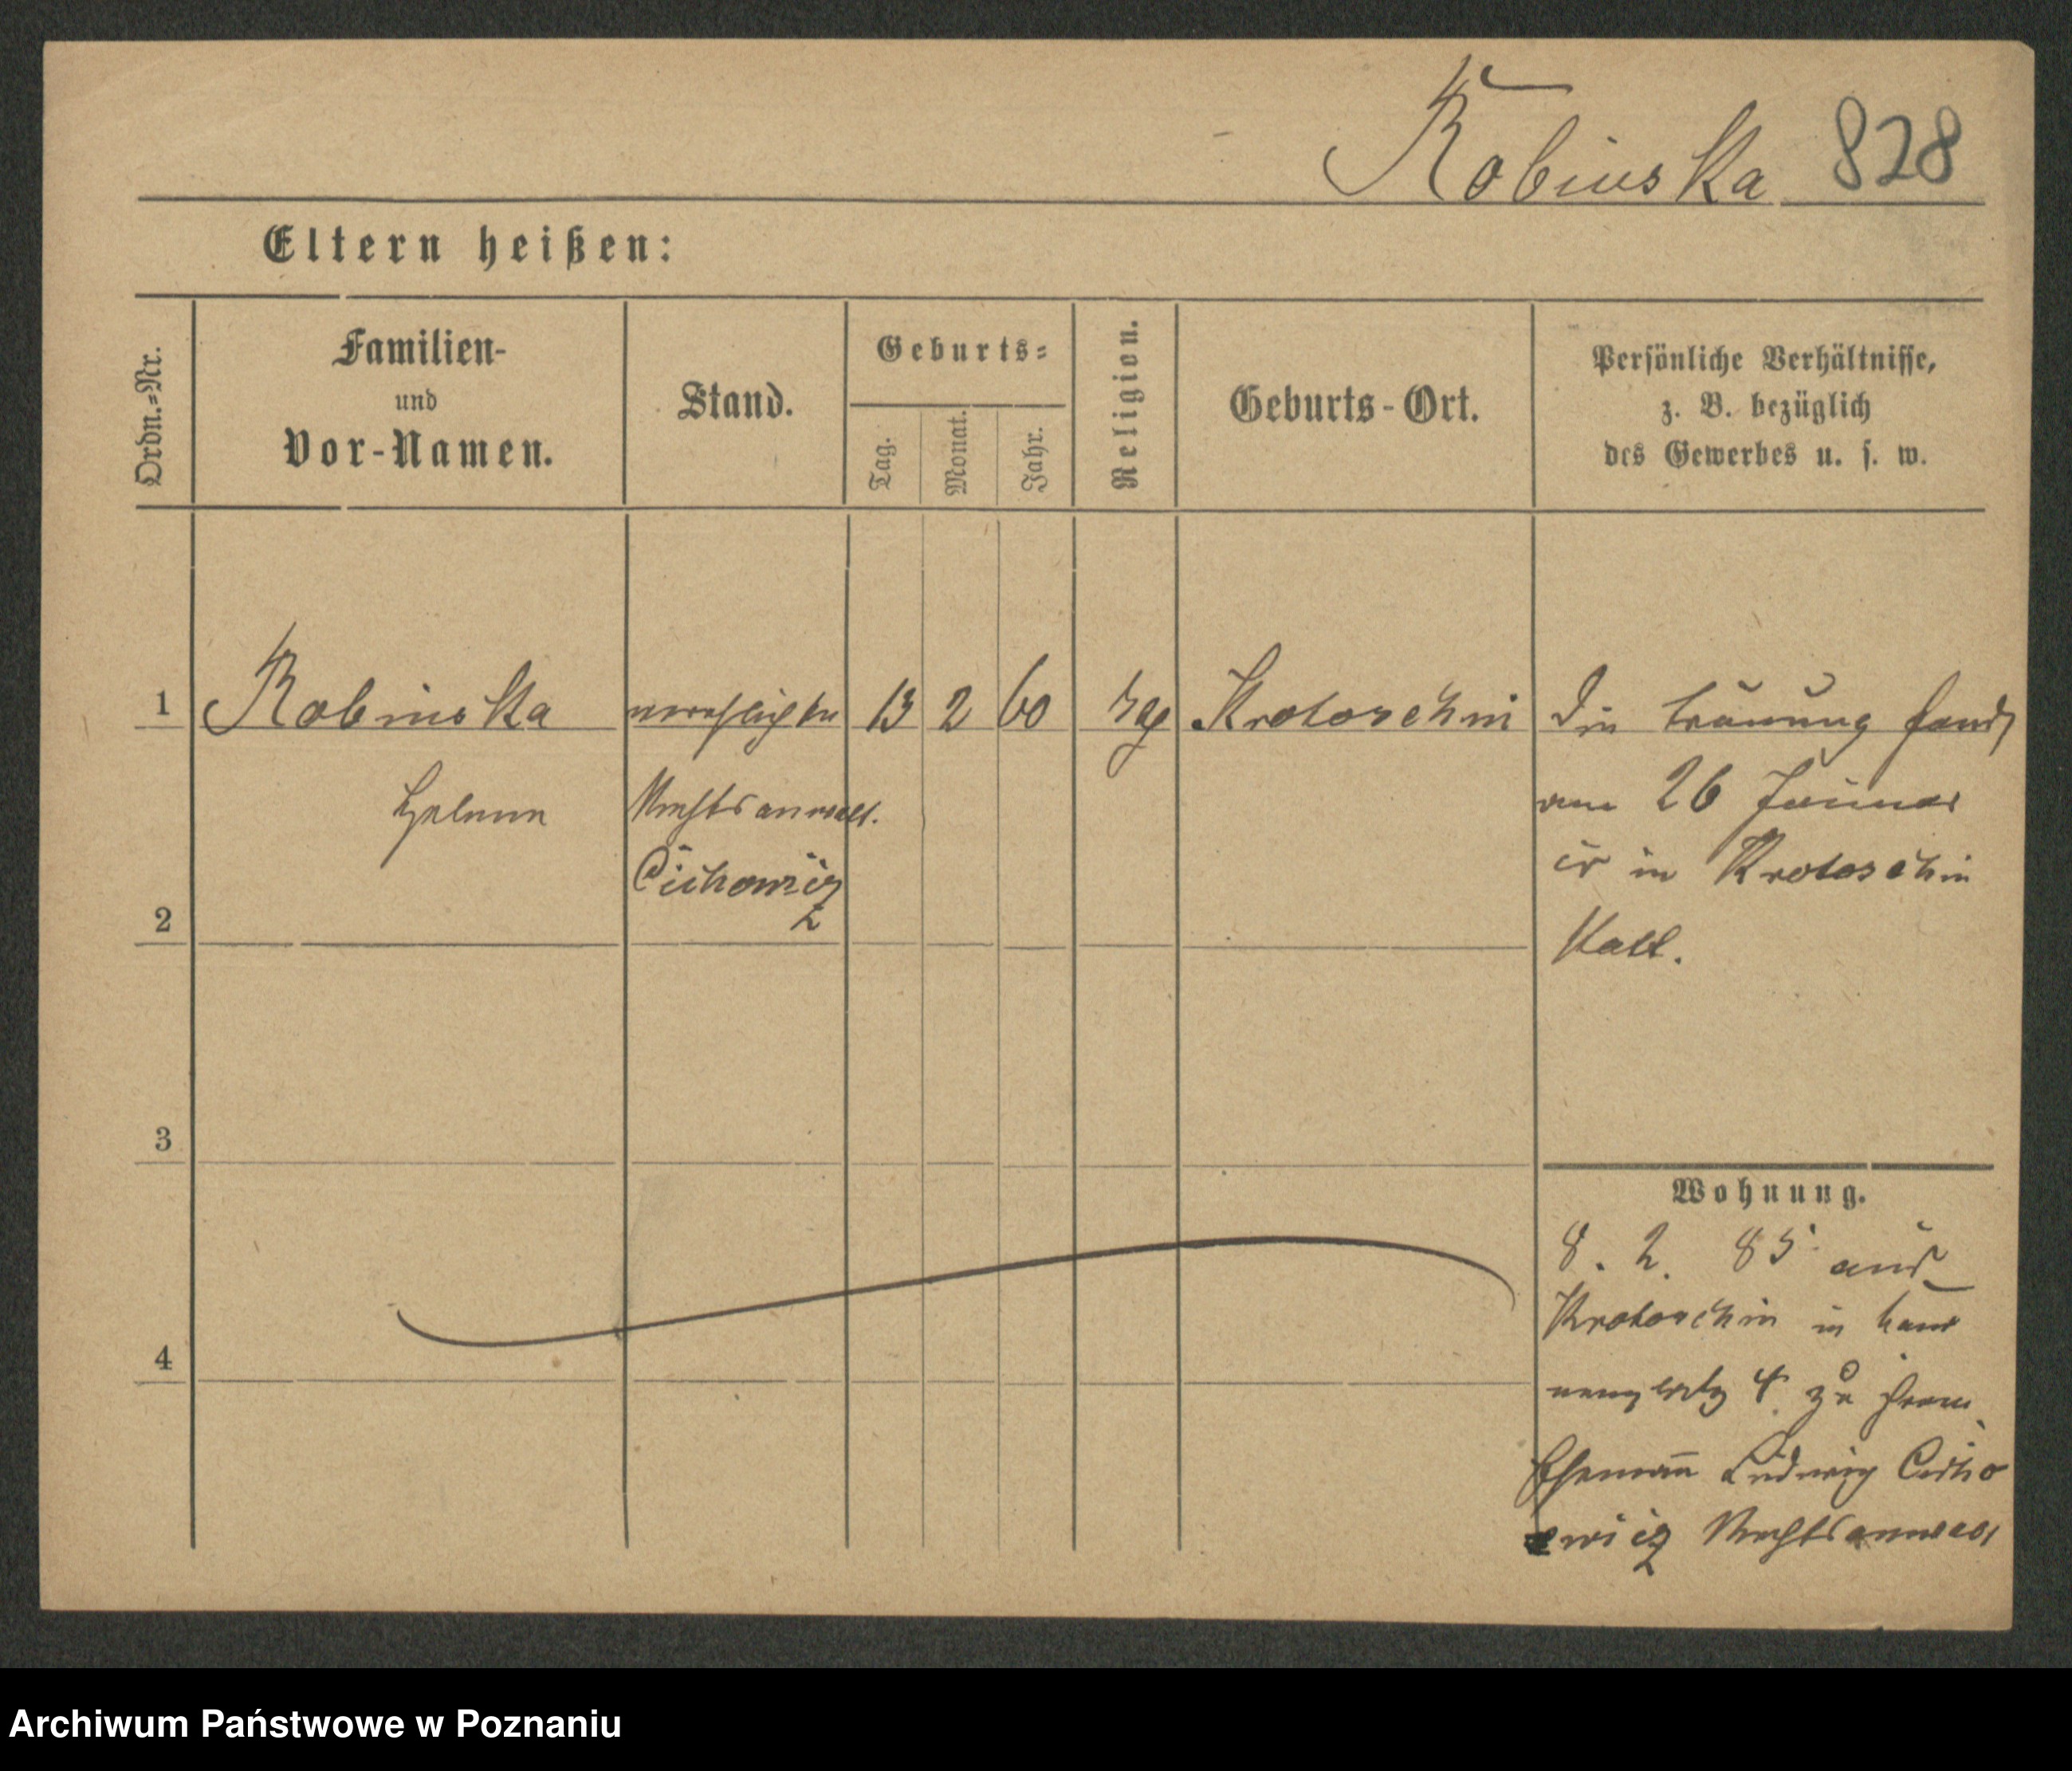 Robinska 828
Eltern heißen:
Ordn.-Nr.
Familien-
und
Vor-Namen.
Stand.
Geburts-
Tag.
Monat.
Jahr.
Religion.
Geburts-Ort.
Persönliche Verhältnisse,
z. B. bezüglich
des Gewerbes u. s. w.
1 Robinska 13 2 60 Krotoschin
Helene
Rechtsanwalt.
Cichowicz
Die Trauung fand
am 26 Januar
cr in Krotoschin
statt.
2
3
4
Wohnung.
8. 2. 85 aus
Krotoschin in
4 zu ihrem
Ehemann Ludwig Cicho
wicz Rechtsanwalt
Archiwum Państwowe w Poznaniu